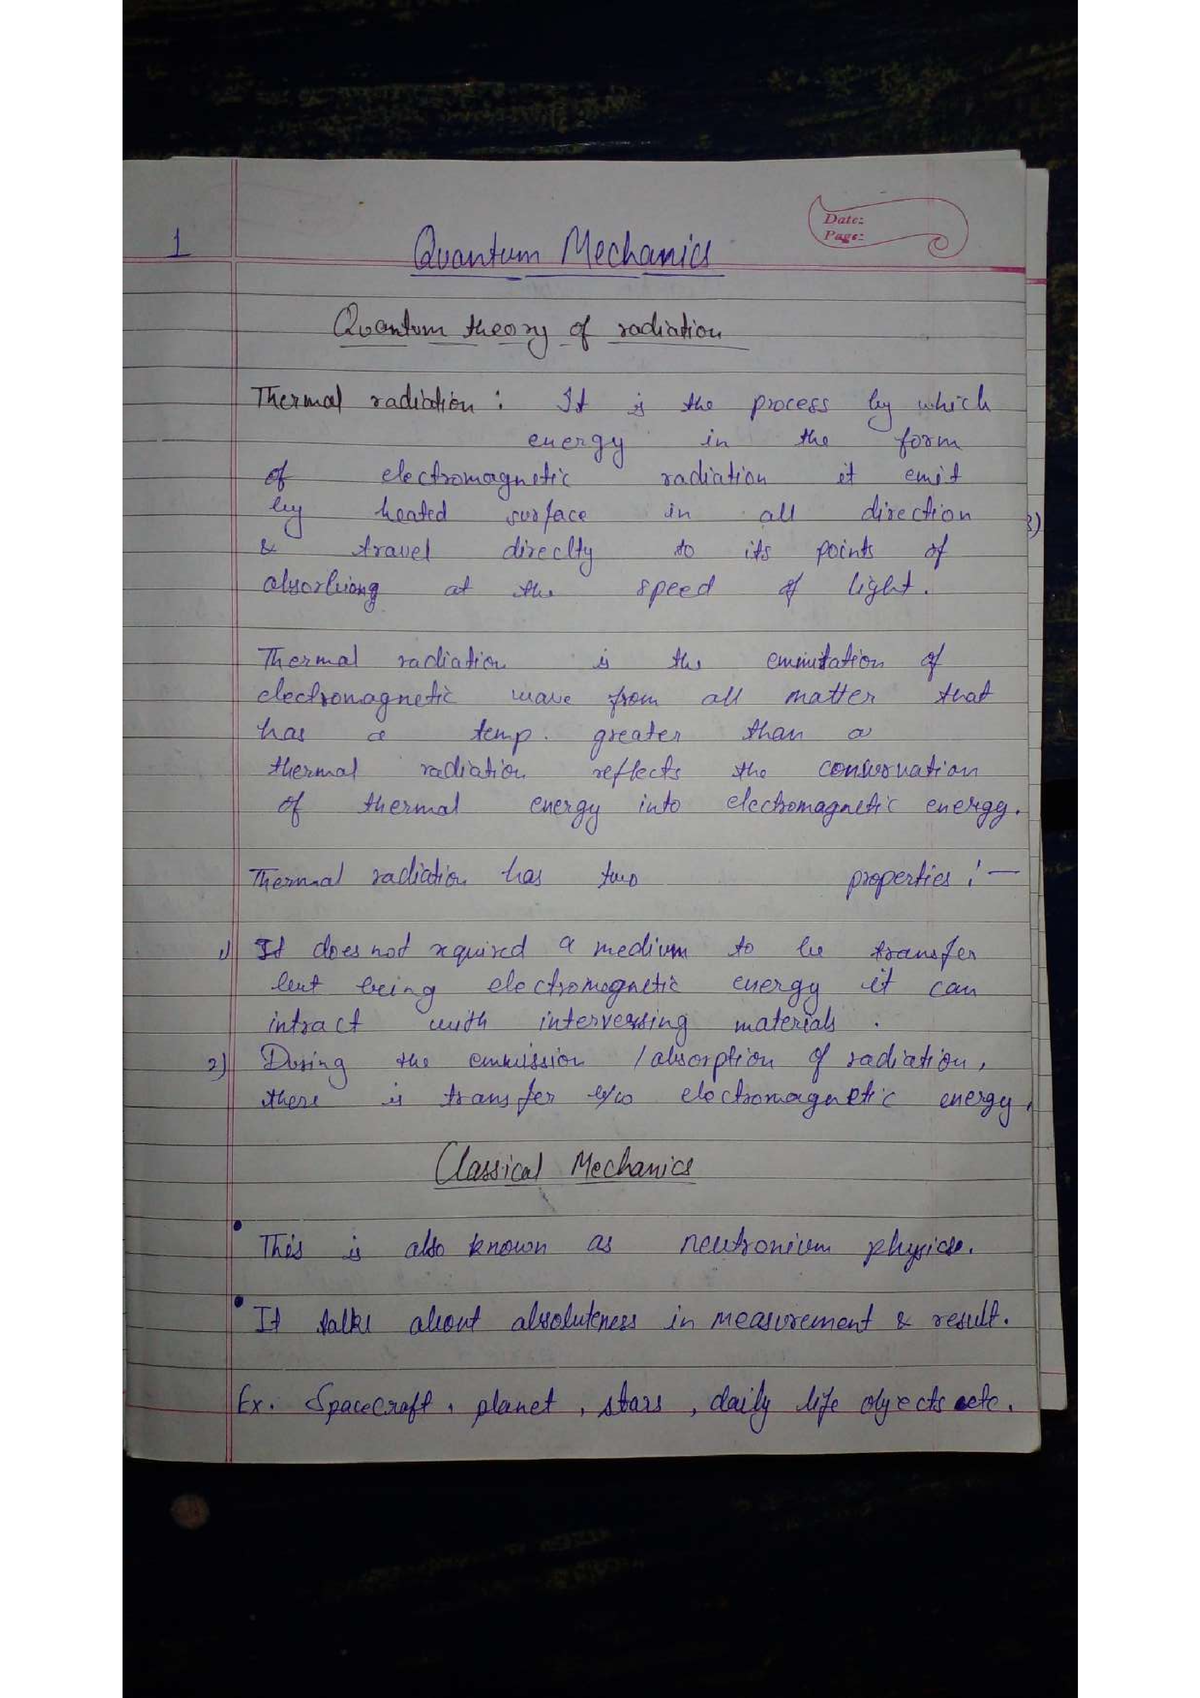 Date:
Page:
1
Quantum Mechanics
Quantum theory of radiation
Thermal radiation : It is the process by which
energy in the form
of electromagnetic radiation it emit
by heated surface in all direction
& travel direclty to its points of
absorbiong at the speed of light.
Thermal radiation is the emmitation of
electromagnetic wave from all matter that
has a temp. greater than a
thermal radiation reflects the conservation
of thermal energy into electromagnetic energy.
Thermal radiation has two properties :—
1) It does not required a medium to be transfer
but being electromognetic energy it can
intract with interversing materials .
2) During the emmission / absorption of radiation,
there is transfer b/w electromagnetic energy.
3)
Classical Mechanics
• This is also known as neutronium physics.
• It talks about absoluteness in measurement & result.
Ex. Spacecraft , planet , stars , daily life objects etc.